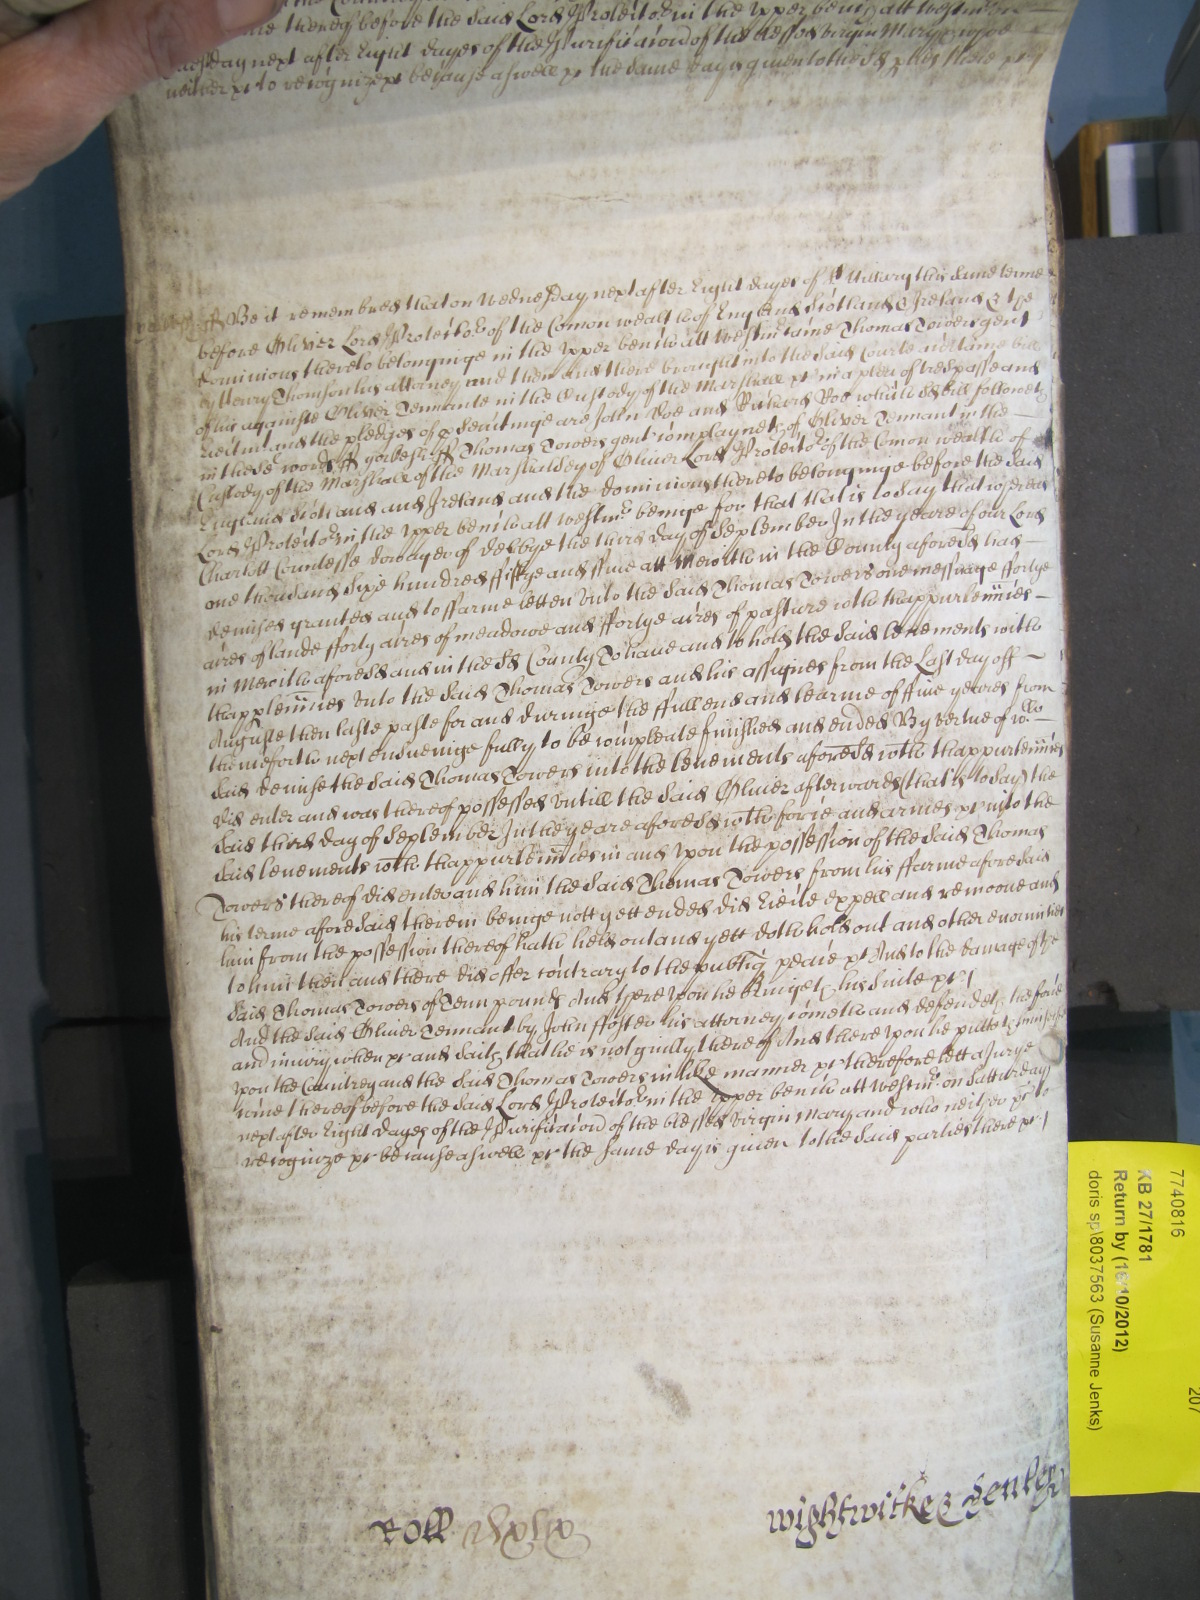 before the said Lord Protector in the upper bench att Westm
next after Eight dayes of the Purificacion of the blessed virgin Mary & whoe
neither &c to recognize &c because aswell &c the same day is given to the sd pties there &c
ss Be it remembred that on Wednesday next after Eight dayes of St Hillary this same terme
before Oliver Lord Protector of the Comon wealth of England Scotland & Ireland & the
dominions thereto belonginge in the upper bench att Westmr came Thomas Towers gent
by Henry Thomson his attorney and then and there brought into the said Courte a certaine bill
of his againste Oliver Tennante in the Custody of the Marshall &c in a plea of trespasse and
Eiectmt and the pledges of psecutinge are John Doe and Richard Roe which sd bill followeth
in these words ss yorkesh ss Thomas Towers gent complayneth of Oliver Tennant in the
Custody of the Marshall of the Marshalsey of Oliver Lord Protector of the Comon wealth of
England Scotland and Ireland and the dominions thereto belonginge before the said
Lord Protector in the upper bench att Westmr beinge for that that is to say that whereas
Charlott Countesse dowager of debbye the third day of September In the yeare of our Lord
one thousand sixe hundred ffiftye and ffive att Mewith in the County aforesd had
demised granted and to ffarme letten unto the said Thomas Towers one messuage ffortye
acres of lande fforty acres of meadowe and ffortye acres of pasture with thappurtennces
in Mewith aforesd and in the sd County To have and to hold the said tenements with
thapptennces unto the said Thomas Towers and his assignes from the Last day off
Auguste then laste paste for and duringe the ffull end and tearme of ffive yeares from
thenceforth next ensueinge fully to be compleate finished and ended By vertue of wch
said demise the said Thomas Towers into the tenements aforesd with thappurtennces
did enter and was thereof possessed untill the said Oliver afterwards (that is to say) the
said third day of September In the yeare aforesd with force and armes &c into the
said tenements with thappurtennces in and upon the possession of the said Thomas
Towers thereof did enter and him the said Thomas Towers from his ffarme aforesaid
his terme aforesaid therein beinge nott yett ended did Eiecte expell and remoove and
him from the possession thereof hath held out and yett doth hold out and other enormities
to him then and there did offer contrary to the publiq peace &c And to the damage of the
said Thomas Towers of Tenn pounds And thereupon he bringeth his suite &c
And the said Oliver Tennant by John ffoster his attorney cometh and defendeth the force
and iniury when &c and saith that he is not guilty thereof And thereupon he putteth himselfe
upon the Countrey and the said Thomas Towers in like manner &c therefore lett a Jurye
come thereof before the said Lord Protector in the upper bench att Westmr on Satturday
next after Eight dayes of the Purificacion of the blessed virgin Mary and who neither &c to
recognize &c because aswell &c the same day is given to the said parties there &c
Roll
Wightwicke &
7740816
KB 27/1781
Return by (16/10/2012)
doris sp\8037563 (Susanne Jenks)
207